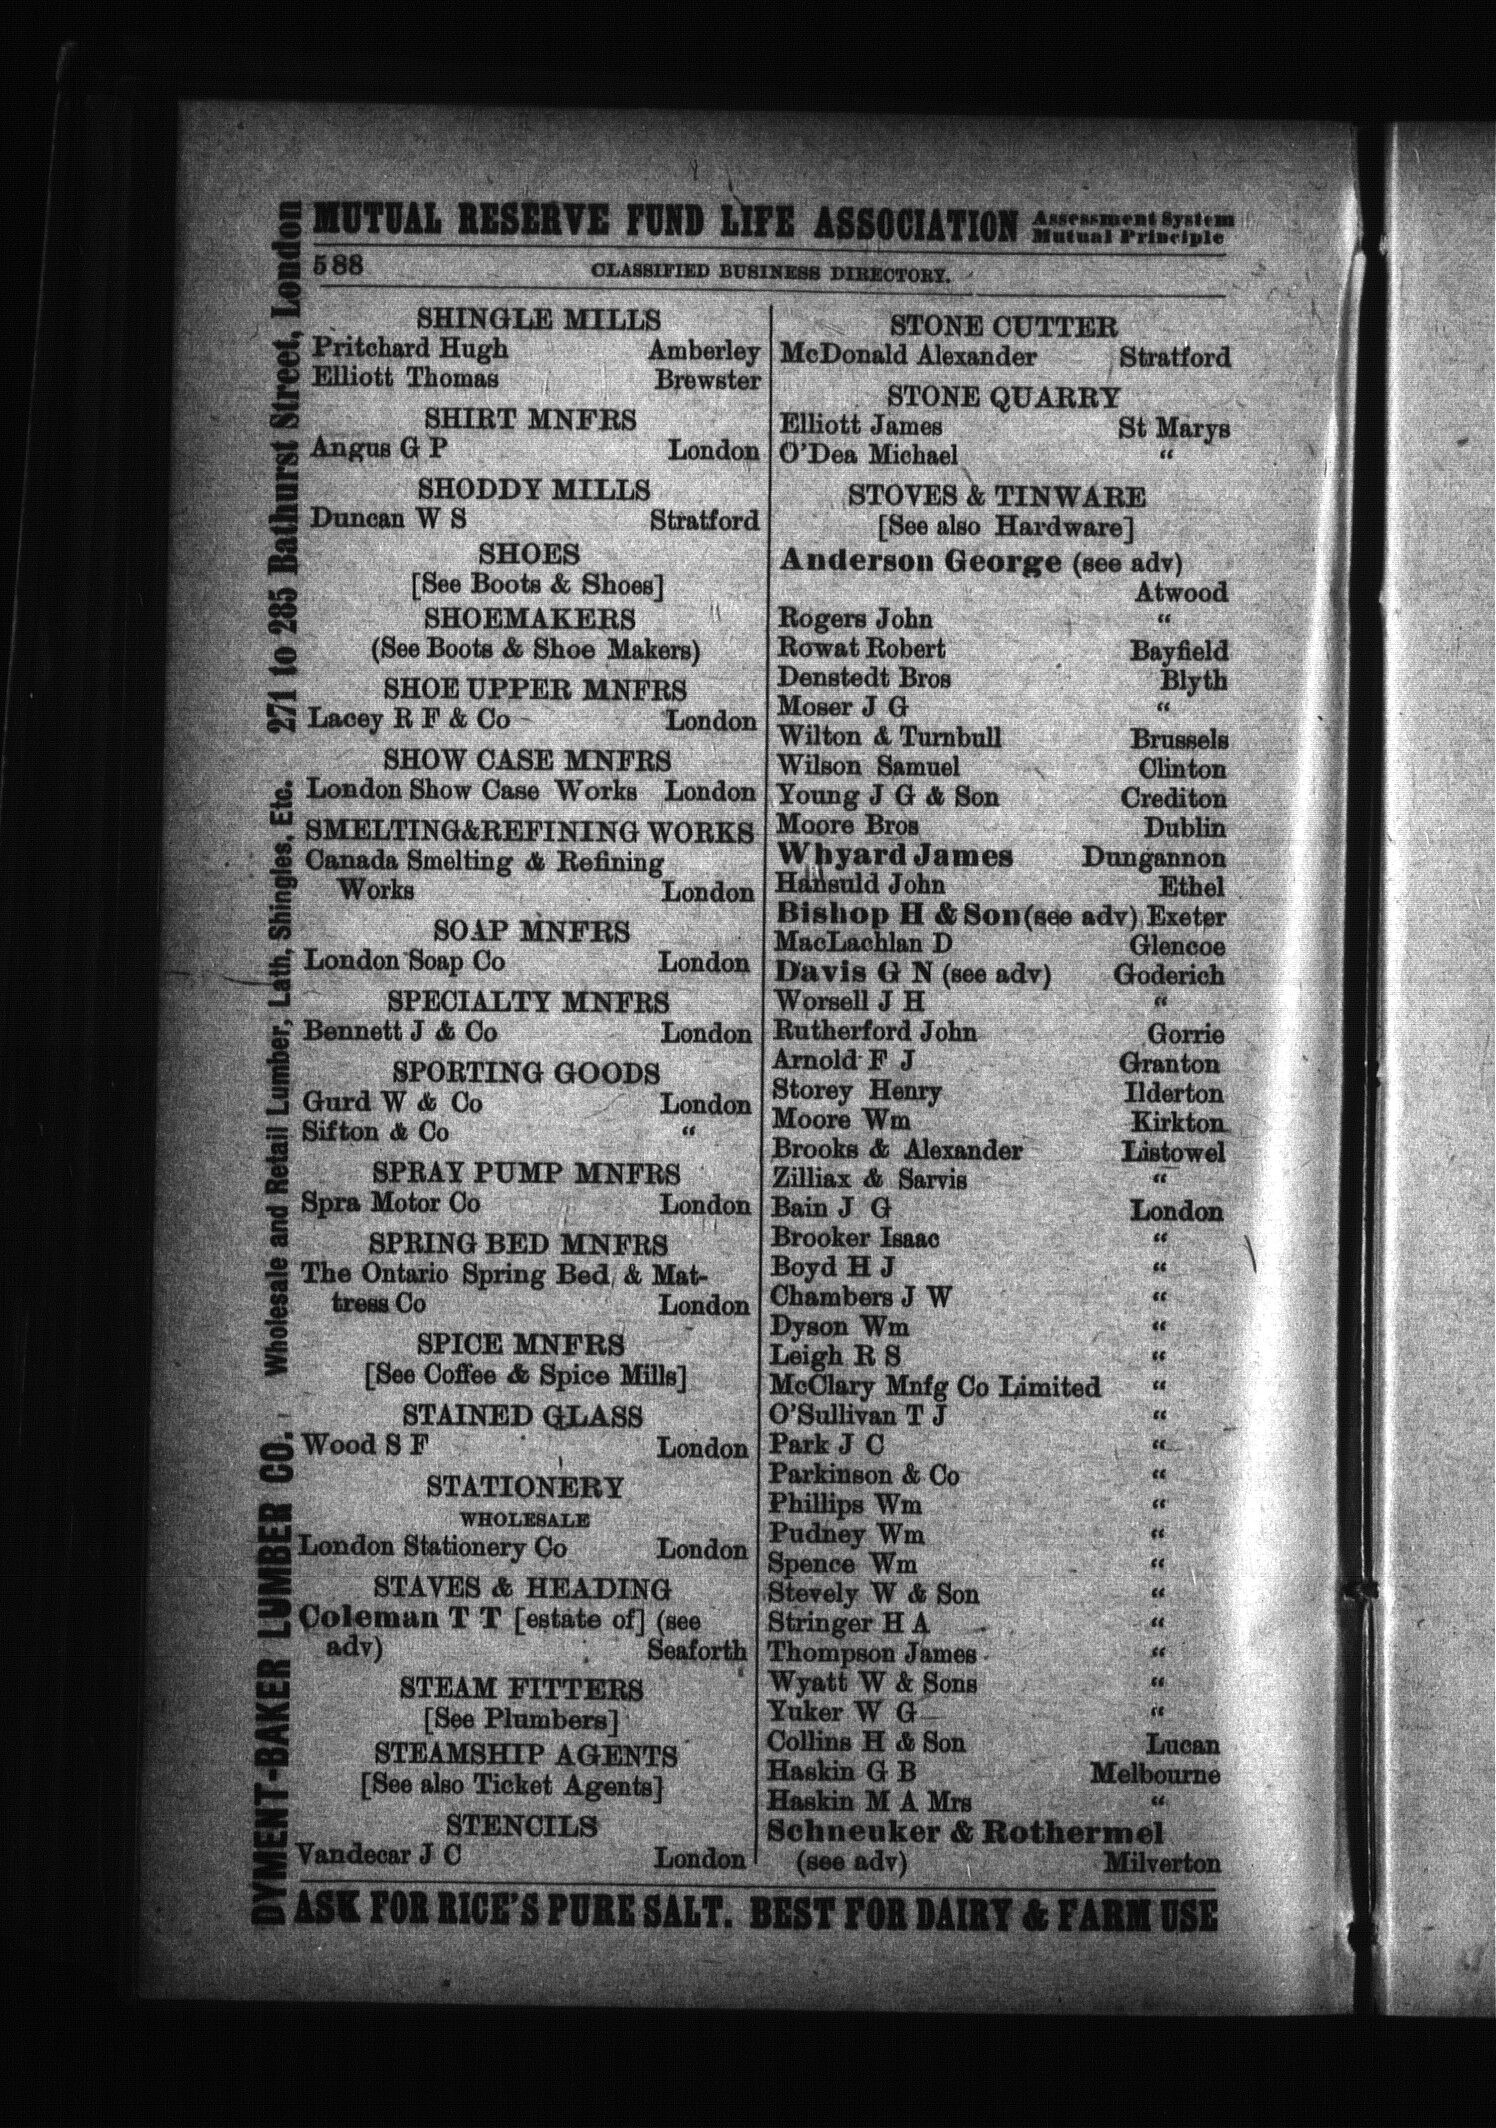 MUTUAL RESERVE FUND LIFE ASSOCIATION Assessment System
Mutual Principle
588 CLASSIFIED BUSINESS DIRECTORY.
DYMENT-BAKER LUMBER CO. Wholesale and Retail Lumber, Lath, Shingles, Etc. 271 to 285 Bathurst Street, London
SHINGLE MILLS
Pritchard Hugh Amberley
Elliott Thomas Brewster
SHIRT MNFRS
Angus G P London
SHODDY MILLS
Duncan W S Stratford
SHOES
[See Boots & Shoes]
SHOEMAKERS
(See Boots & Shoe Makers)
SHOE UPPER MNFRS
Lacey R F & Co London
SHOW CASE MNFRS
London Show Case Works London
SMELTING&REFINING WORKS
Canada Smelting & Refining
Works London
SOAP MNFRS
London Soap Co London
SPECIALTY MNFRS
Bennett J & Co London
SPORTING GOODS
Gurd W & Co London
Sifton & Co "
SPRAY PUMP MNFRS
Spra Motor Co London
SPRING BED MNFRS
The Ontario Spring Bed & Mat-
tress Co London
SPICE MNFRS
[See Coffee & Spice Mills]
STAINED GLASS
Wood S F London
STATIONERY
WHOLESALE
London Stationery Co London
STAVES & HEADING
Coleman T T [estate of] (see
adv) Seaforth
STEAM FITTERS
[See Plumbers]
STEAMSHIP AGENTS
[See also Ticket Agents]
STENCILS
Vandecar J C London
STONE CUTTER
McDonald Alexander Stratford
STONE QUARRY
Elliott James St Marys
O'Dea Michael "
STOVES & TINWARE
[See also Hardware]
Anderson George (see adv)
Atwood
Rogers John "
Rowat Robert Bayfield
Denstedt Bros Blyth
Moser J G "
Wilton & Turnbull Brussels
Wilson Samuel Clinton
Young J G & Son Crediton
Moore Bros Dublin
Whyard James Dungannon
Hansuld John Ethel
Bishop H & Son (see adv) Exeter
MacLachlan D Glencoe
Davis G N (see adv) Goderich
Worsell J H "
Rutherford John Gorrie
Arnold F J Granton
Storey Henry Ilderton
Moore Wm Kirkton
Brooks & Alexander Listowel
Zilliax & Sarvis "
Bain J G London
Brooker Isaac "
Boyd H J "
Chambers J W "
Dyson Wm "
Leigh R S "
McClary Mnfg Co Limited "
O'Sullivan T J "
Park J C "
Parkinson & Co "
Phillips Wm "
Pudney Wm "
Spence Wm "
Stevely W & Son "
Stringer H A "
Thompson James "
Wyatt W & Sons "
Yuker W G "
Collins H & Son Lucan
Haskin G B Melbourne
Haskin M A Mrs "
Schneuker & Rothermel
(see adv) Milverton
ASK FOR RICE'S PURE SALT. BEST FOR DAIRY & FARM USE